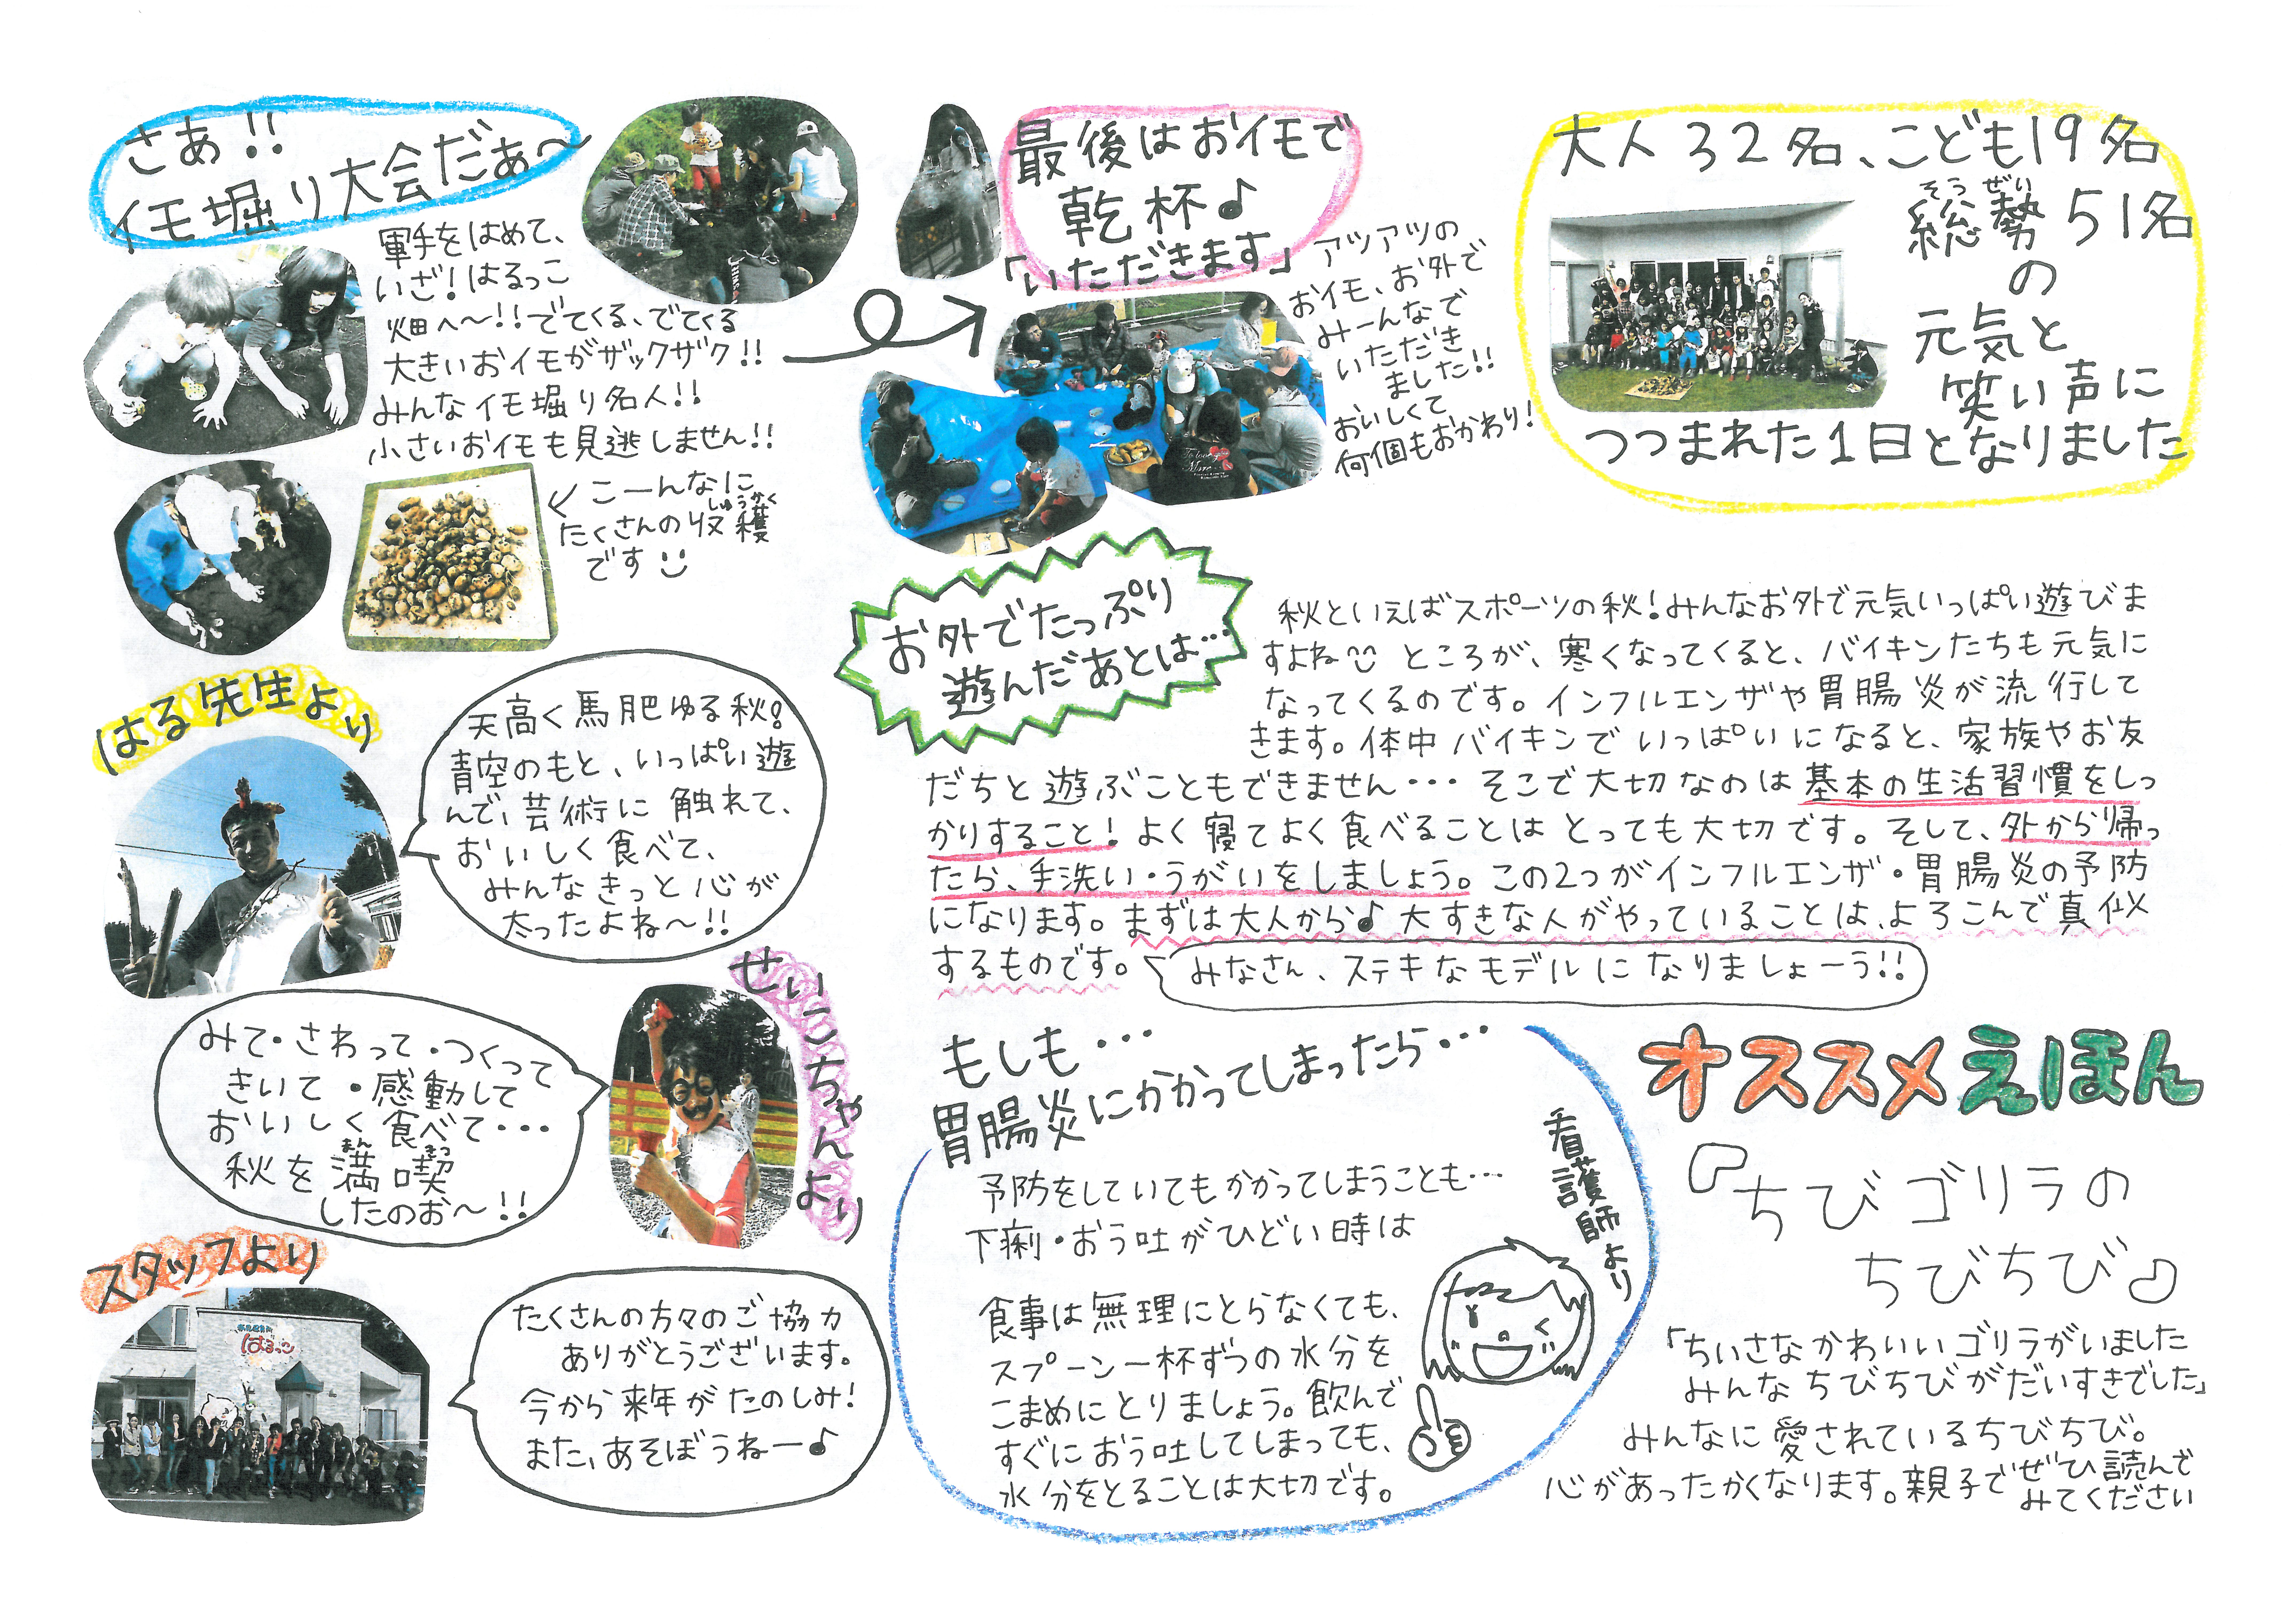 さあ!!
イモ堀り大会だぁ〜
軍手をはめて、
いざ!はるっこ
畑へ〜!!でてくる、でてくる
大きいおイモがザックザク!!
みんなイモ堀り名人!!
小さいおイモも見逃しません!!
こーんなに
しゅうかく
たくさんの収穫
です
最後はおイモで
乾杯♪
「いただきます」
アツアツの
おイモ、お外で
みーんなで
いただき
ました!!
おいしくて
何個もおかわり!
大人32名、こども19名
そうぜい
総勢51名
の
元気と
笑い声に
つつまれた1日となりました
はる先生より
天高く馬肥ゆる秋!
青空のもと、いっぱい遊
んで、芸術に触れて、
おいしく食べて、
みんなきっと心が
太ったよね〜!!
せいこちゃんより
みて・さわって・つくって
きいて・感動して
おいしく食べて・・・
まんきつ
秋を満喫
したのお〜!!
スタッフより
はるっこ
たくさんの方々のご協力
ありがとうございます。
今から来年がたのしみ!
また、あそぼうねー♪
お外でたっぷり
遊んだあとは…
秋といえばスポーツの秋!みんなお外で元気いっぱい遊びま
すよね ところが、寒くなってくると、バイキンたちも元気に
なってくるのです。インフルエンザや胃腸炎が流行して
きます。体中バイキンでいっぱいになると、家族やお友
だちと遊ぶこともできません・・・そこで大切なのは基本の生活習慣をしっ
かりすること!よく寝てよく食べることはとっても大切です。そして、外から帰っ
たら、手洗い・うがいをしましょう。この2つがインフルエンザ・胃腸炎の予防
になります。まずは大人から♪大すきな人がやっていることは、よろこんで真似
するものです。
みなさん、ステキなモデルになりましょーう!!
もしも・・・
胃腸炎にかかってしまったら・・・
看護師より
予防をしていてもかかってしまうことも…
下痢・おう吐がひどい時は
食事は無理にとらなくても、
スプーン一杯ずつの水分を
こまめにとりましょう。飲んで
すぐにおう吐してしまっても、
水分をとることは大切です。
オススメえほん
『ちびゴリラの
ちびちび』
「ちいさなかわいいゴリラがいました
みんなちびちびがだいすきでした」
みんなに愛されているちびちび。
心があったかくなります。親子でぜひ読んで
みてください